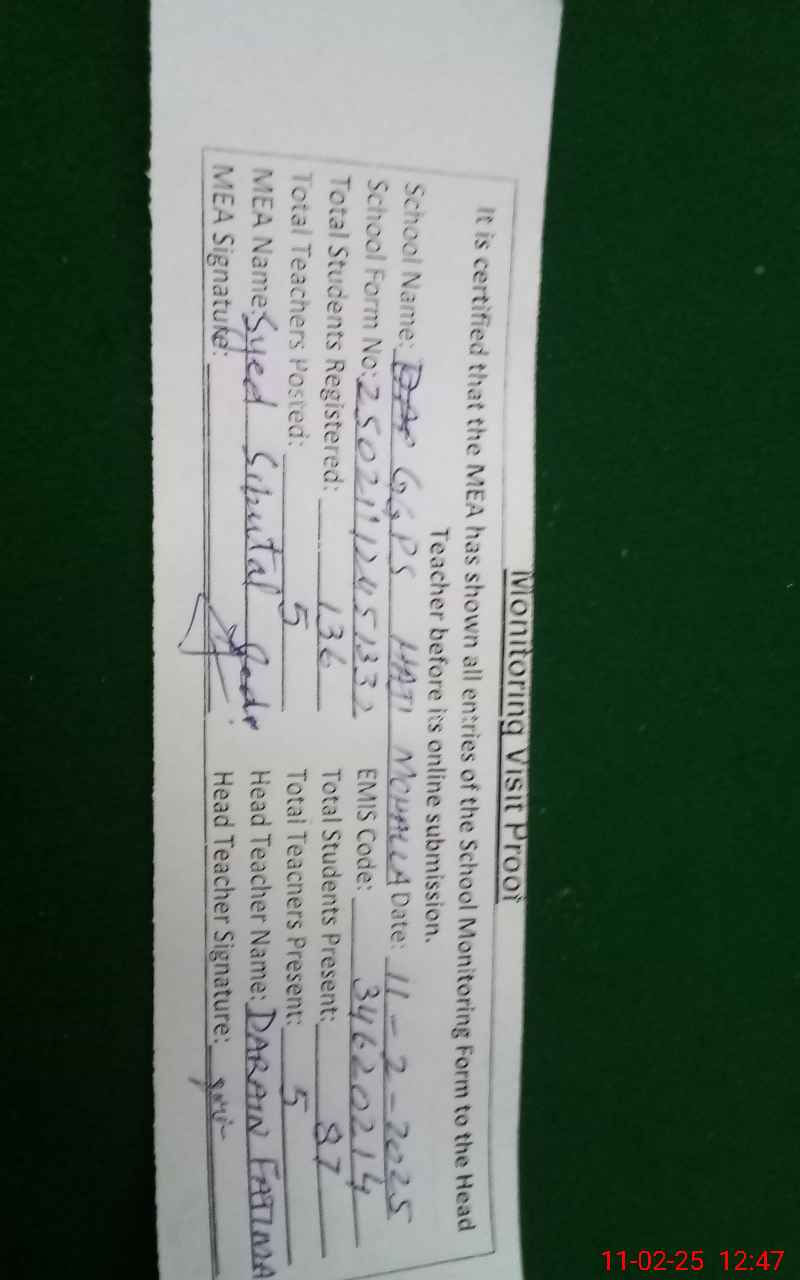 Monitoring Visit Proof
It is certified that the MEA has shown all entries of the School Monitoring Form to the Head
Teacher before its online submission.
School Name: GGPS HATI MOHALLA Date: 11-2-2025
School Form No: 25021112451332 EMIS Code: 34620214
Total Students Registered: 136 Total Students Present: 87
Total Teachers Posted: 5 Total Teachers Present: 5
MEA Name: Syed Head Teacher Name: DARAIN FATIMA
MEA Signature: Head Teacher Signature:
11-02-25 12:47